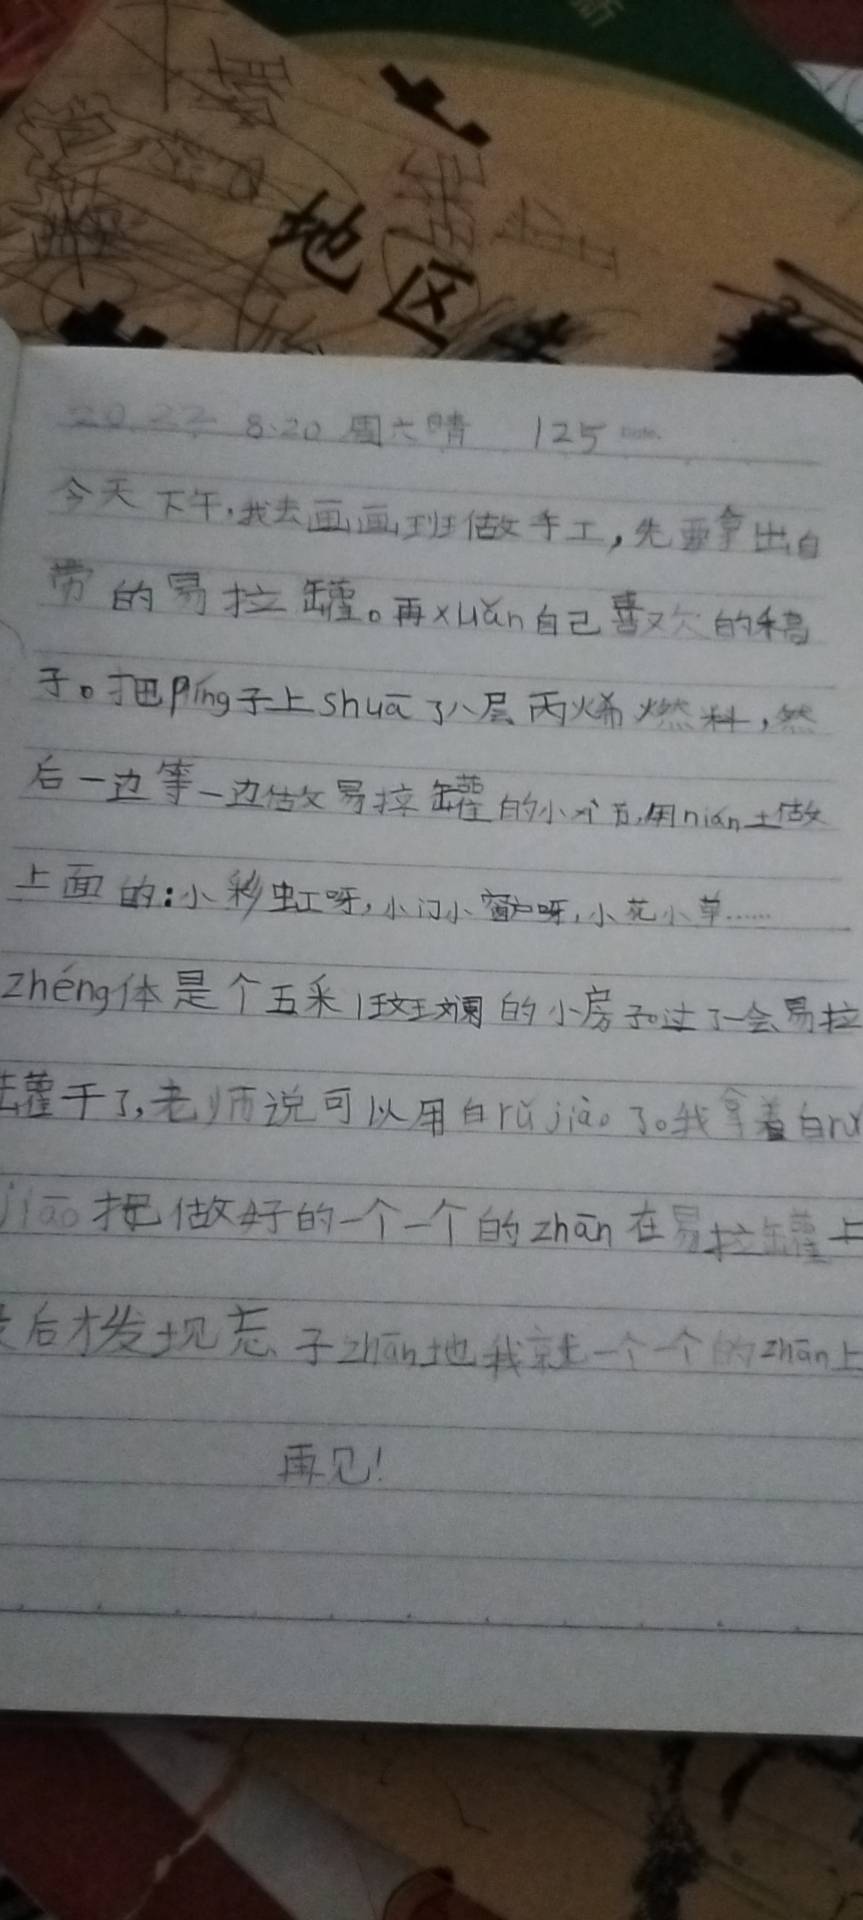 新
地区
2022 8.20 周六晴 125
今天下午,我去画画班做手工,先要拿出自
带的易拉罐。再xuǎn自己喜欢的稿
子。把píng子上shuā了八层丙烯燃料,然
后一边等一边做易拉罐的小
用nián土做
上面的:小彩虹呀,小门小窗户呀,小花小草……
zhéng体是个五采斑斓的小房子。过了一会易拉
罐干了,老师说可以用白rǔ jiāo了。我拿着白rǔ
jiāo把做好的一个一个的zhān在易拉罐上
后才发现忘了zhān地我就一个一个的zhān上
再见!